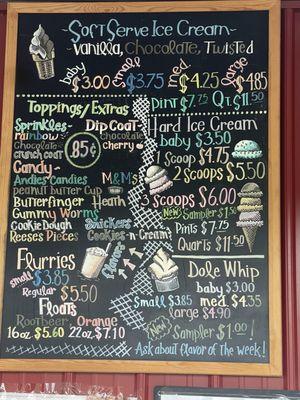 Soft Serve Ice Cream
~Vanilla, Chocolate, Twisted
baby $3.00 small $3.75 med. $4.25 large $4.85
Pint $7.75 Qt. $11.50
Toppings/Extras
Sprinkles~ Dip Coat~
rainbow chocolate
Chocolate cherry
crunch coat .85¢
Candy~
Andies Candies M&M's
peanut butter Cup
Butterfinger Heath
Gummy Worms
Cookie Dough Snickers
Reeses Pieces Cookies-n-Cream
Hard Ice Cream
baby $3.50
1 scoop $4.75
2 scoops $5.50
3 scoops $6.00
New Sampler $1.50
Pints $7.75
Quarts $11.50
Flurries
small $3.85
Regular $5.50
Flavors
Floats
Rootbeer, Orange
16oz $5.60 22oz $7.10
Dole Whip
baby $3.00
small $3.85 med. $4.35
large $4.90
New Sampler $1.00!
Ask about flavor of the week!